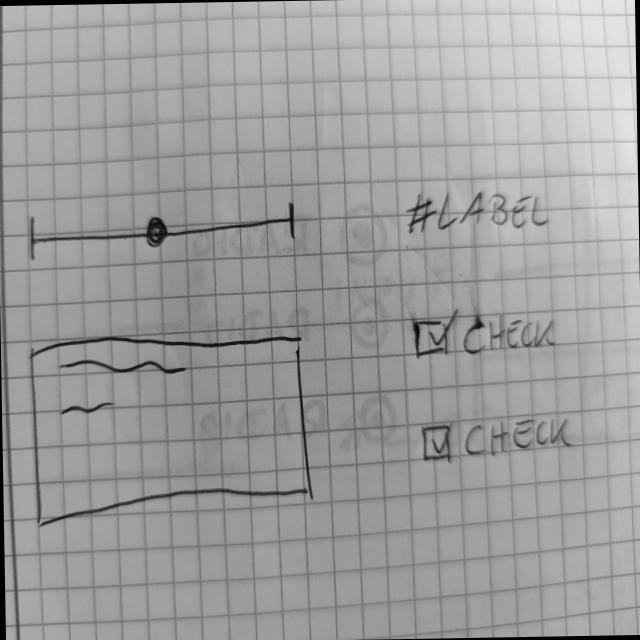 #LABEL
CHECK
CHECK